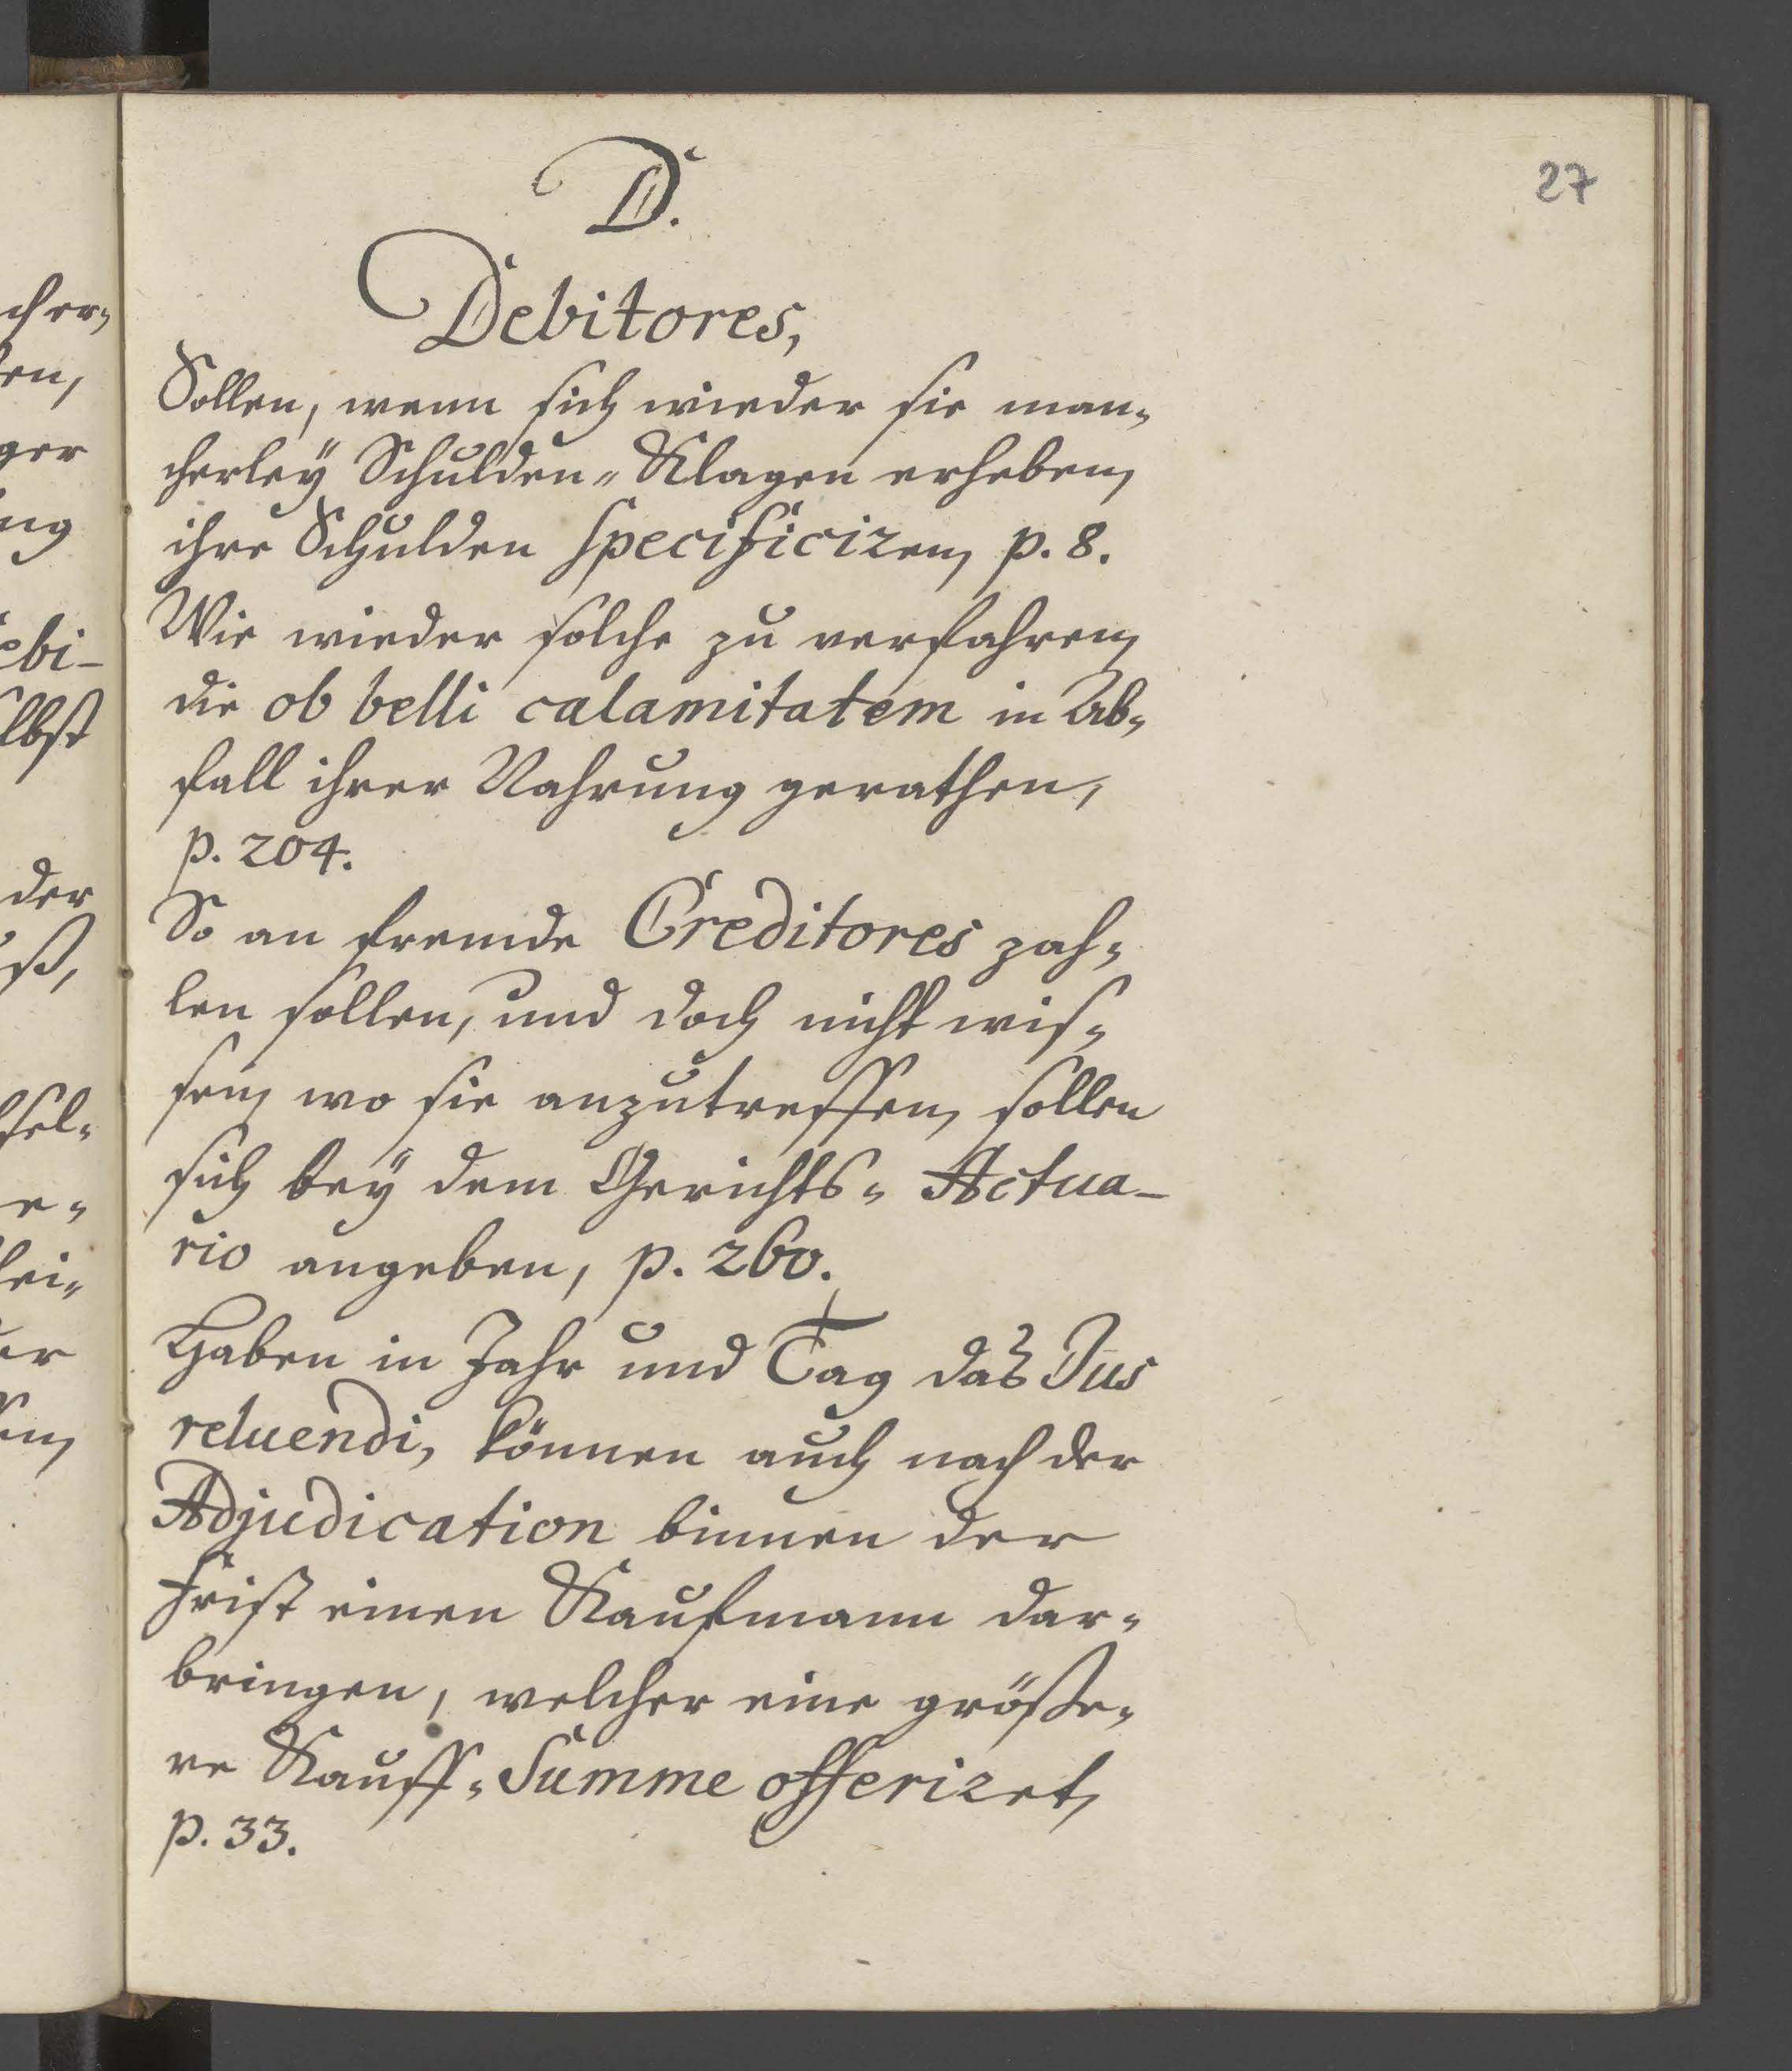 27
D.
Debitores,
Sollen, wenn sich wieder sie man-
cherleÿ Schulden-Klagen erheben,
ihre Schulden specificiren, p. 8.
Wie wieder solche zu verfahren,
die ob belli calamitatem in Ab-
fall ihrer Nahrung gerathen,
p. 204.
So an fremde Creditores zah-
len sollen, und doch nicht wis-
sen, wo sie anzutreffen, sollen
sich beÿ dem Gerichts-Actua-
rio angeben, p. 260.
Haben in Jahr und Tag das Jus
reluendi, können auch nach der
Adjudication binnen der
Frist einen Kaufmann dar-
bringen, welcher eine größe-
re Kauff-Summe offeriret,
p. 33.